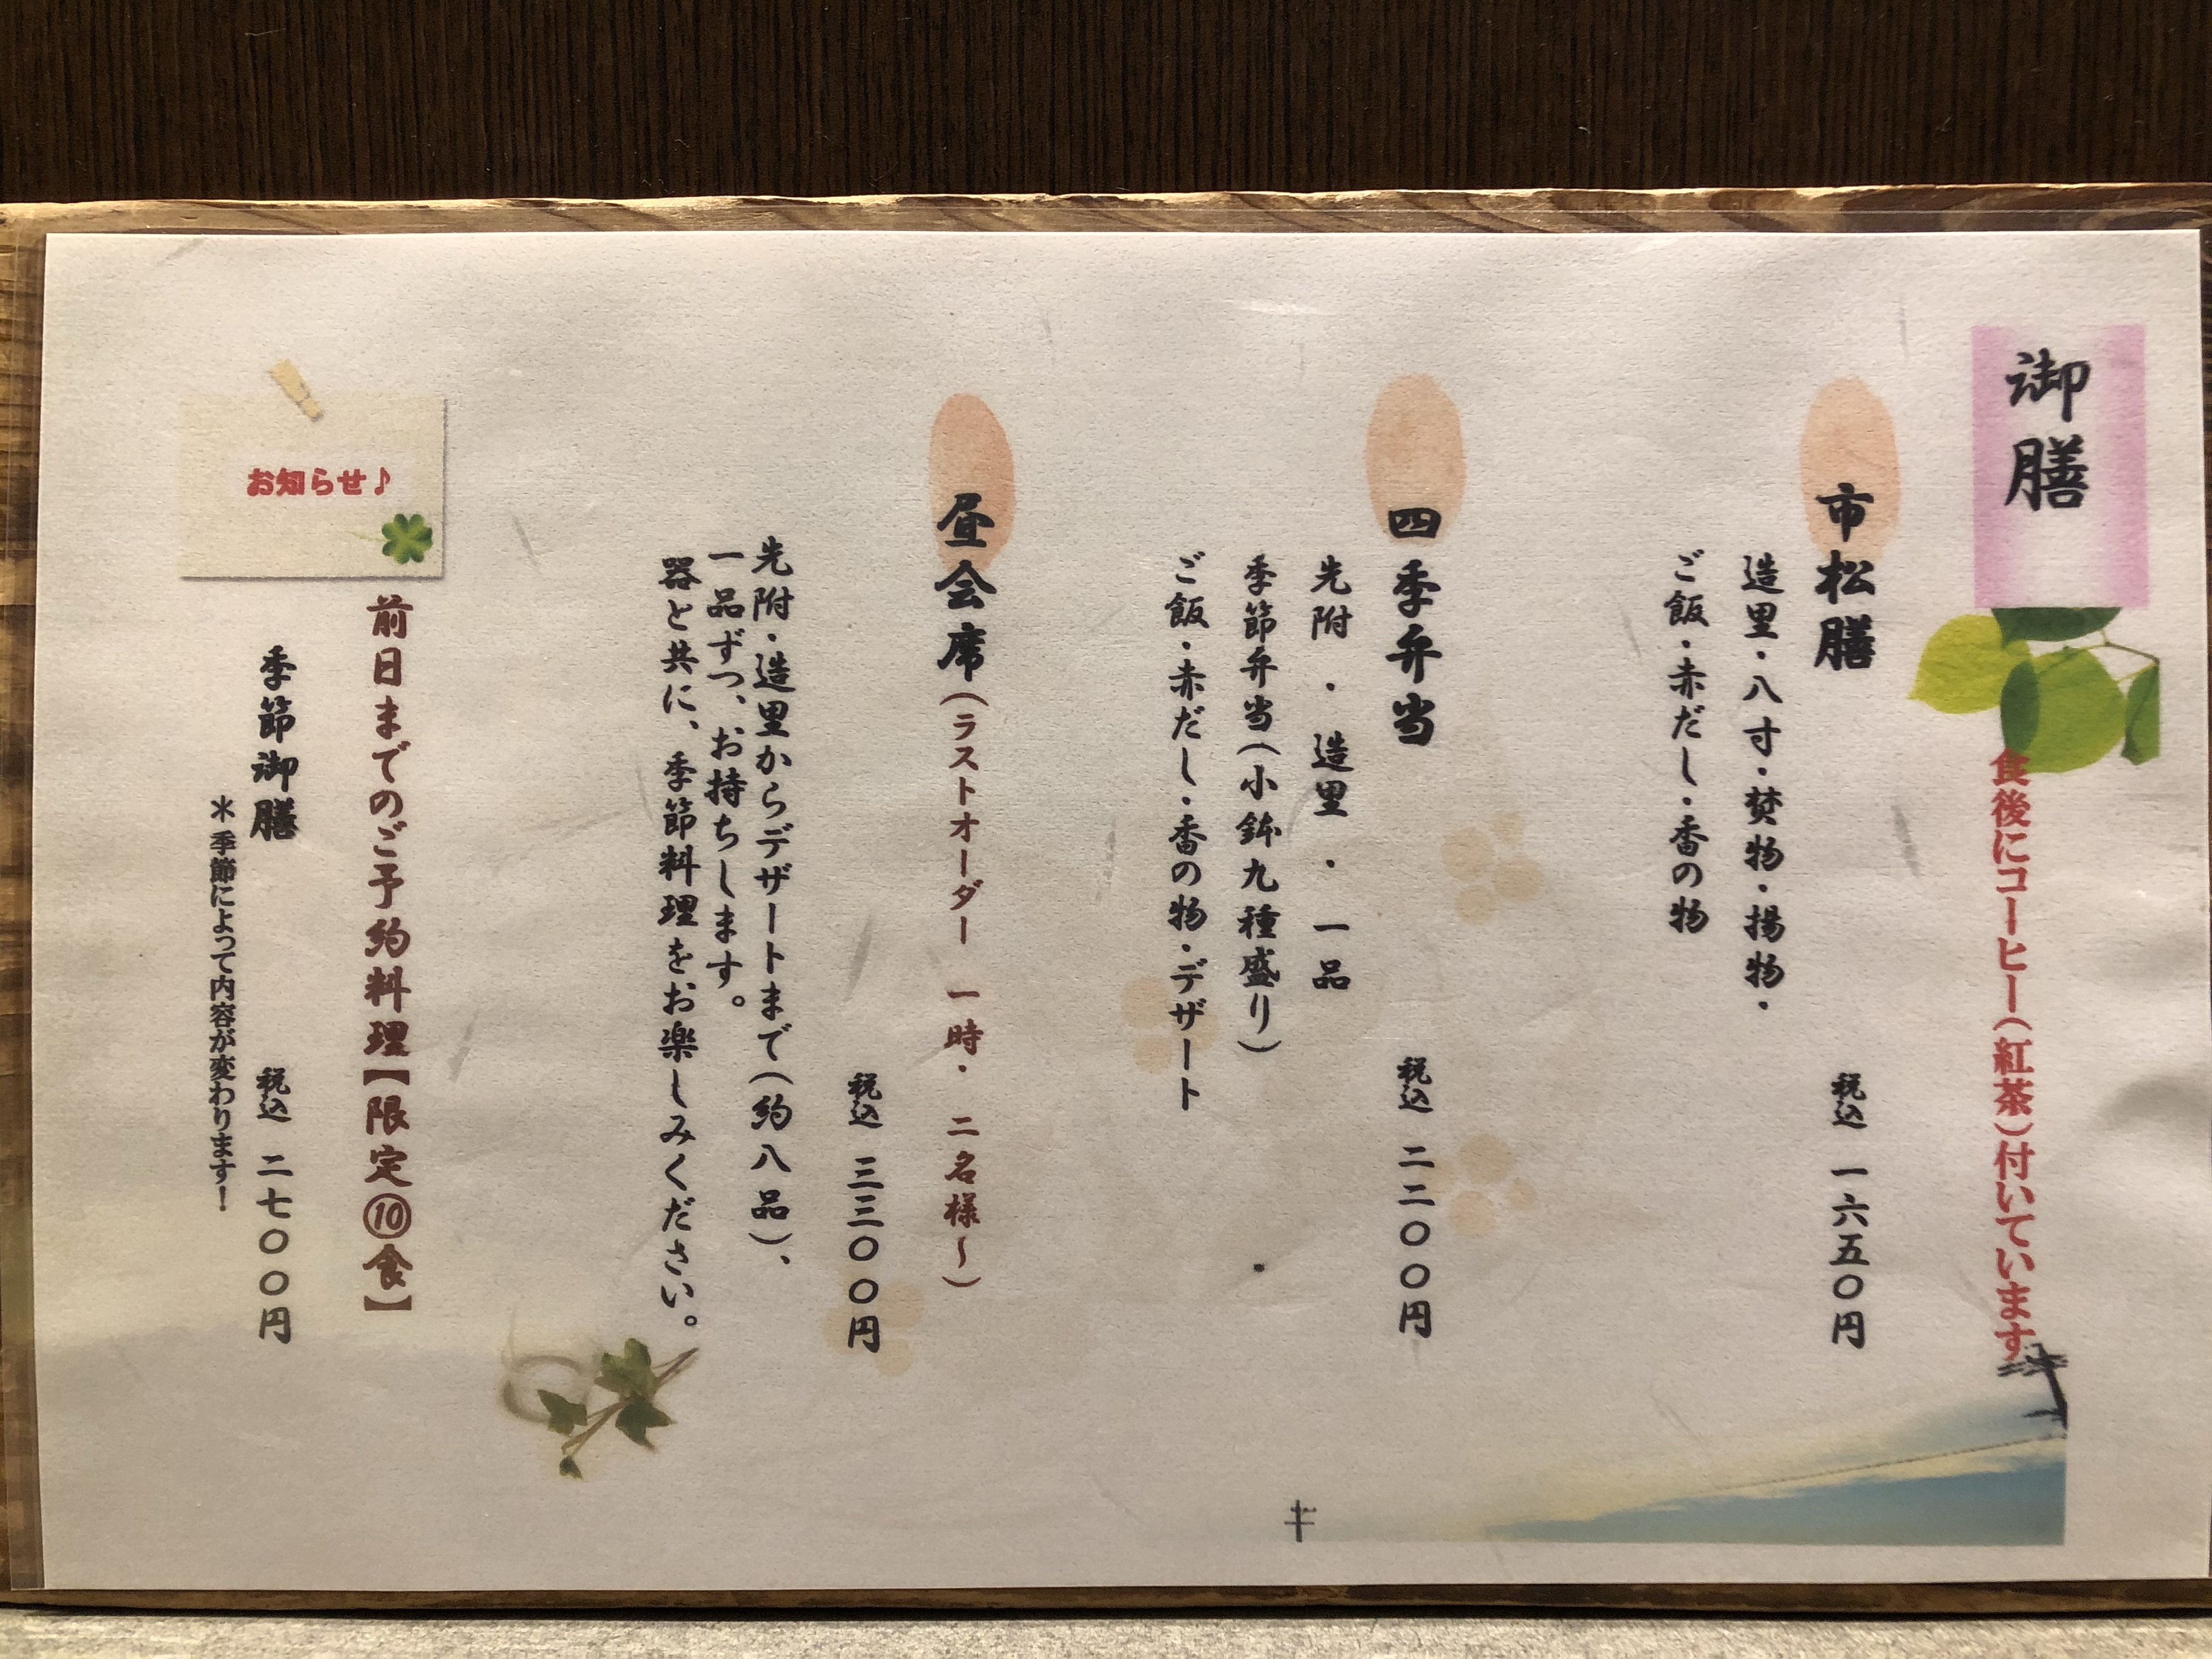 御膳
食後にコーヒー(紅茶)付いています
市松膳
税込 一六五〇円
造里・八寸・焚物・揚物・
ご飯・赤だし・香の物
四季弁当
税込 二二〇〇円
先附・造里・一品
季節弁当(小鉢九種盛り)
ご飯・赤だし・香の物・デザート
昼会席(ラストオーダー 一時・二名様～)
税込 三三〇〇円
先附・造里からデザートまで(約八品)、
一品ずつ、お持ちします。
器と共に、季節料理をお楽しみください。
お知らせ♪
前日までのご予約料理【限定⑩食】
季節御膳
税込 二七〇〇円
＊季節によって内容が変わります！